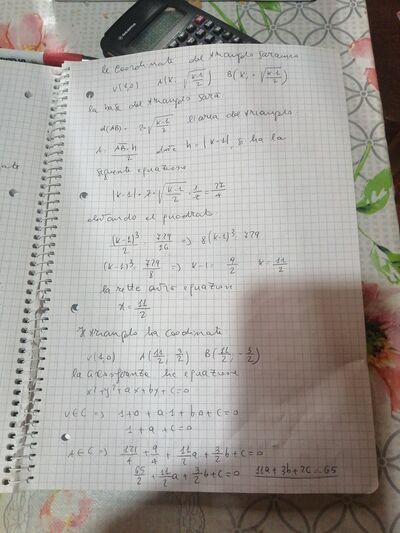 le coordinate del triangolo saranno
V(1,0) A(k; √(k-1/2)) B(k; -√(k-1/2))
la base del triangolo sarà
d(AB) = 2√(k-1/2) l'area del triangolo
A = AB·h/2 dato h = |k-1|, si ha la
seguente equazione
|k-1| · 2 · √(k-1/2) · 1/2 = 27/4
elevando al quadrato
(k-1)³/2 = 729/16 => 8(k-1)³ = 729
(k-1)³ = 729/8 => k-1 = 9/2 k = 11/2
la retta avrà equazione
x = 11/2
Il triangolo ha coordinate
V(1,0) A(11/2; 3/2) B(11/2; -3/2)
la circonferenza ha equazione
x²+y²+ax+by+c=0
V∈C => 1+0+a·1+b·0+c=0
1+a+c=0
A∈C => 121/4 + 9/4 + 11/2 a + 3/2 b + c = 0
65/2 + 11/2 a + 3/2 b + c = 0 11a+3b+2c=-65